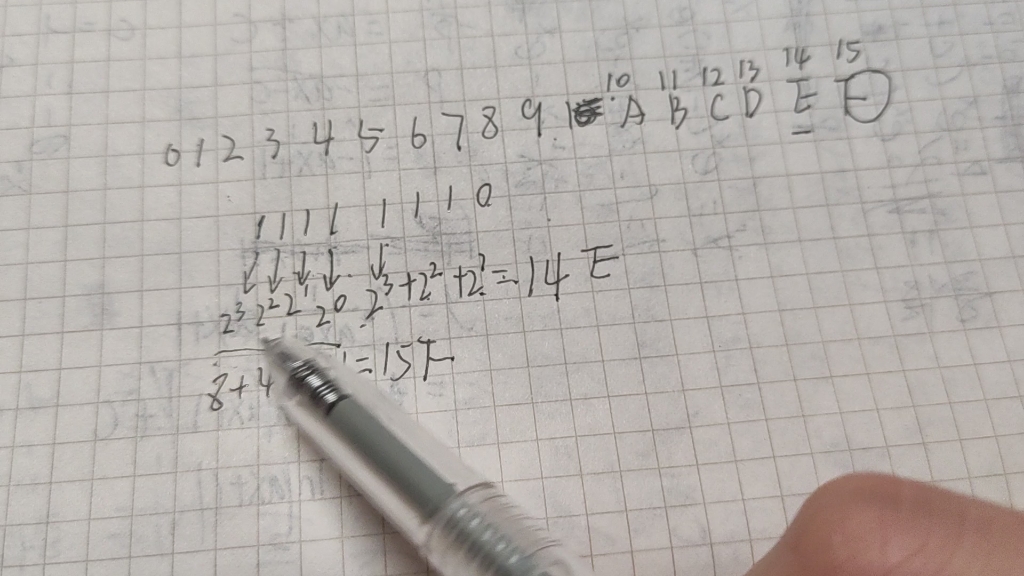 10 11 12 13 14 15
0 1 2 3 4 5 6 7 8 9 A B C D E F
1 1 1 1 1 1 1 0
↓ ↓ ↓ ↓ ↓
2³ 2² 2¹ 2⁰ 2³+2²+2¹=14 E
8+4 1=15 F